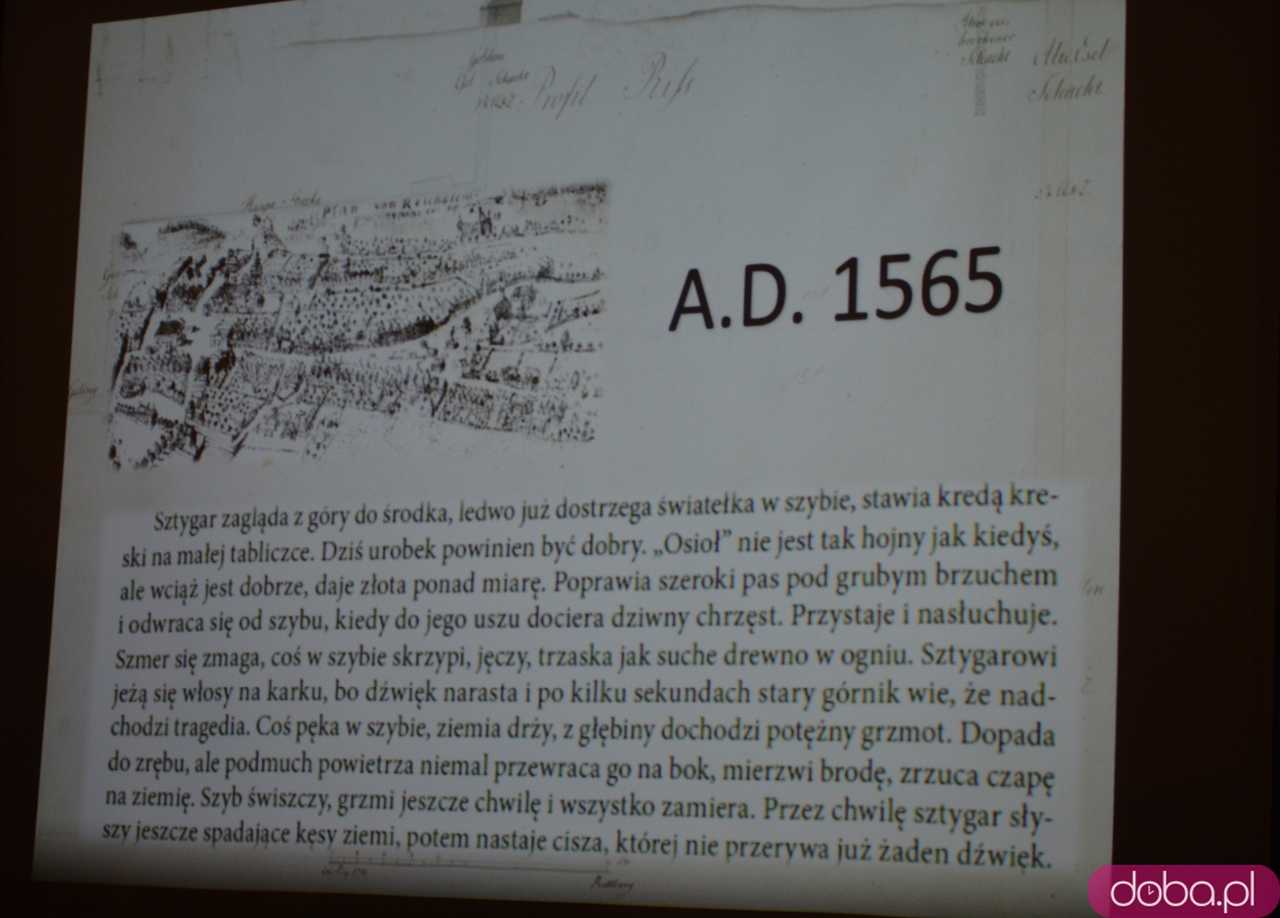 Schacht
Profil Riss
Schacht
Schacht
Plan von Reichenst
A.D. 1565
Sztygar zagląda z góry do środka, ledwo już dostrzega światełka w szybie, stawia kredą kre-
ski na małej tabliczce. Dziś urobek powinien być dobry. „Osioł” nie jest tak hojny jak kiedyś,
ale wciąż jest dobrze, daje złota ponad miarę. Poprawia szeroki pas pod grubym brzuchem
i odwraca się od szybu, kiedy do jego uszu dociera dziwny chrzęst. Przystaje i nasłuchuje.
Szmer się zmaga, coś w szybie skrzypi, jęczy, trzaska jak suche drewno w ogniu. Sztygarowi
jeżą się włosy na karku, bo dźwięk narasta i po kilku sekundach stary górnik wie, że nad-
chodzi tragedia. Coś pęka w szybie, ziemia drży, z głębiny dochodzi potężny grzmot. Dopada
do zrębu, ale podmuch powietrza niemal przewraca go na bok, mierzwi brodę, zrzuca czapę
na ziemię. Szyb świszczy, grzmi jeszcze chwilę i wszystko zamiera. Przez chwilę sztygar sły-
szy jeszcze spadające kęsy ziemi, potem nastaje cisza, której nie przerywa już żaden dźwięk.
doba.pl